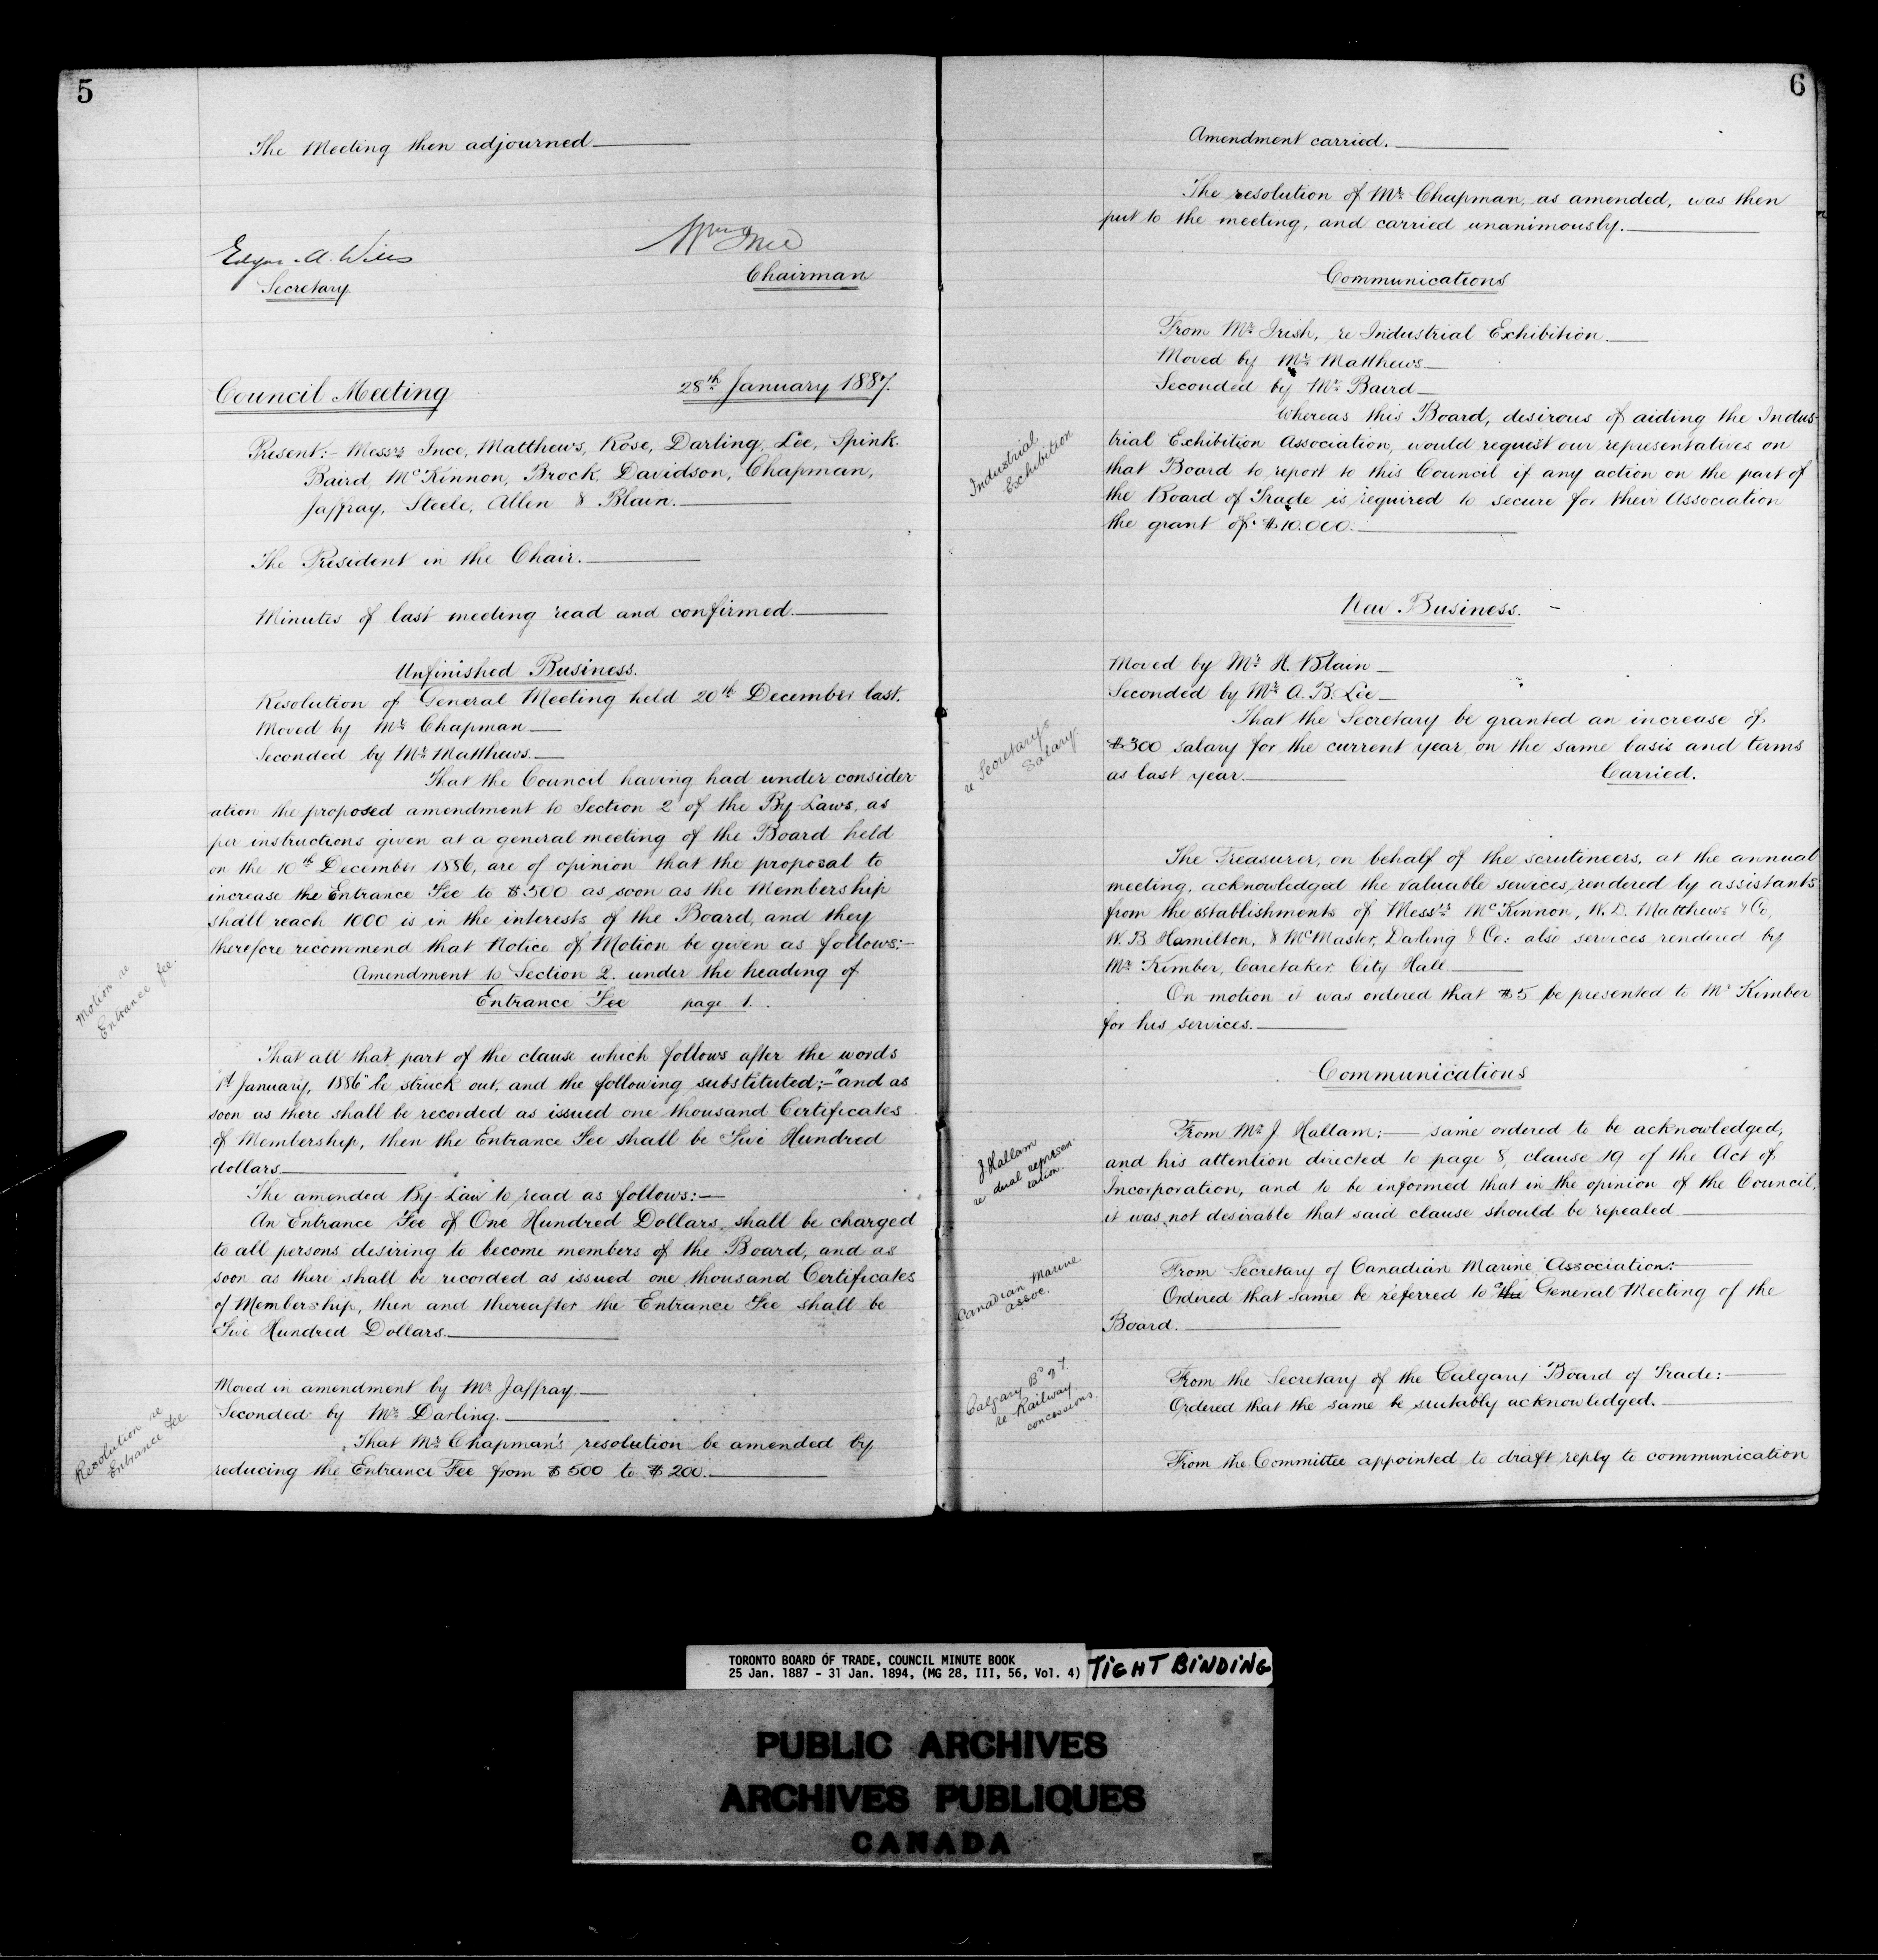 5
The Meeting then adjourned
Edgar A. Wills
Secretary
Wm Ince
Chairman
Council Meeting 28th January 1887.
Present:- Messrs Ince, Matthews, Rose, Darling, Lee, Spink.
Baird, McKinnon, Brock, Davidson, Chapman,
Jaffray, Steele, Allen & Blain.
The President in the Chair.
Minutes of last meeting read and confirmed.
Unfinished Business.
Resolution of General Meeting held 20th December last.
Moved by Mr Chapman
Seconded by Mr Matthews.
That the Council having had under consider-
ation the proposed amendment to Section 2 of the By-Laws, as
per instructions given at a general meeting of the Board held
on the 10th December 1886, are of opinion that the proposal to
increase the Entrance Fee to $500 as soon as the Membership
shall reach 1000 is in the interests of the Board, and they
therefore recommend that Notice of Motion be given as follows:-
Motion re
Entrance fee.
Amendment to Section 2. under the heading of
Entrance Fee page 1.
That all that part of the clause which follows after the words
1st January, 1886" be struck out, and the following substituted:- "and as
soon as there shall be recorded as issued one thousand Certificates
of Membership, then the Entrance Fee shall be Five Hundred
dollars
The amended By-Law to read as follows:-
An Entrance Fee of One Hundred Dollars, shall be charged
to all persons desiring to become members of the Board, and as
soon as there shall be recorded as issued one thousand Certificates
of Membership, then and thereafter the Entrance Fee shall be
Five Hundred Dollars.
Moved in amendment by Mr Jaffray.
Seconded by Mr Darling.
Resolution re
Entrance Fee
That Mr Chapman's resolution be amended by
reducing the Entrance Fee from $500 to $200.
6
Amendment carried.
The resolution of Mr Chapman, as amended, was then
put to the meeting, and carried unanimously.
Communications
From Mr Irish, re Industrial Exhibition.
Moved by Mr Matthews
Seconded by Mr Baird
Industrial
Exhibition
Whereas this Board, desirous of aiding the Indus-
trial Exhibition Association, would request our representatives on
that Board to report to this Council if any action on the part of
the Board of Trade is required to secure for their Association
the grant of $10.000.
New Business.
Moved by Mr H. Blain
Seconded by Mr A. B. Lee
re Secretary's
Salary.
That the Secretary be granted an increase of
$300 salary for the current year, on the same basis and terms
as last year. Carried.
The Treasurer, on behalf of the scrutineers, at the annual
meeting, acknowledged the valuable services rendered by assistants
from the establishments of Messrs McKinnon, W. D. Matthews & Co,
W. B. Hamilton, & McMaster, Darling & Co: also services rendered by
Mr Kimber, Caretaker City Hall.
On motion it was ordered that $5 be presented to Mr Kimber
for his services.
Communications
J. Hallam
re dual represen-
tation.
From Mr J. Hallam:- same ordered to be acknowledged,
and his attention directed to page 8, clause 19 of the Act of
Incorporation, and to be informed that in the opinion of the Council,
it was not desirable that said clause should be repealed
Canadian Marine
Assoc.
From Secretary of Canadian Marine Association:-
Ordered that same be referred to a the General Meeting of the
Board.
Calgary Bd of T.
re Railway
concessions.
From the Secretary of the Calgary Board of Trade:
Ordered that the same be suitably acknowledged.
From the Committee appointed to draft reply to communication
TORONTO BOARD OF TRADE, COUNCIL MINUTE BOOK
25 Jan. 1887 - 31 Jan. 1894, (MG 28, III, 56, Vol. 4)
TIGHT BINDING
PUBLIC ARCHIVES
ARCHIVES PUBLIQUES
CANADA